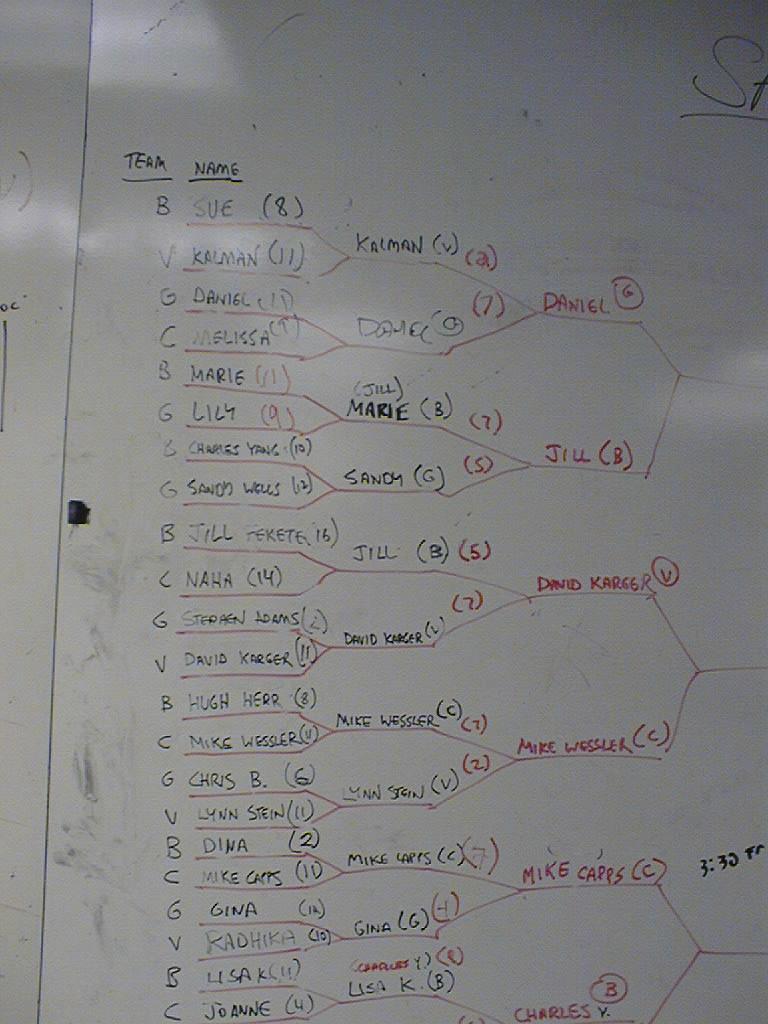 TEAM NAME
B SUE (8)
KALMAN (V) (2)
V KALMAN (11)
DANIEL G
G DANIEL (11)
(7)
C MELISSA (9)
B MARIE (11)
(JILL)
MARIE (B) (7)
G LILY (9)
JILL (B)
B CHARLES YANG (10)
SANDY (G) (5)
G SANDY WELLS (12)
B JILL FEKETE
JILL (B) (5)
C NAHA (14)
DAVID KARGER V
G STEPHEN ADAMS
DAVID KARGER (7)
V DAVID KARGER (11)
B HUGH HERR (8)
MIKE WESSLER (C) (7)
C MIKE WESSLER
MIKE WESSLER (C)
G CHRIS B. (6)
LYNN STEIN (V) (2)
V LYNN STEIN (11)
B DINA (2)
MIKE CAPPS (C) (7)
C MIKE CAPPS (11)
MIKE CAPPS (C)
3:30
G GINA
GINA (G) (-1)
V RADHIKA (10)
B LISA K (11)
(CHARLES Y.)
LISA K. (B)
C JOANNE (4)
CHARLES Y. B